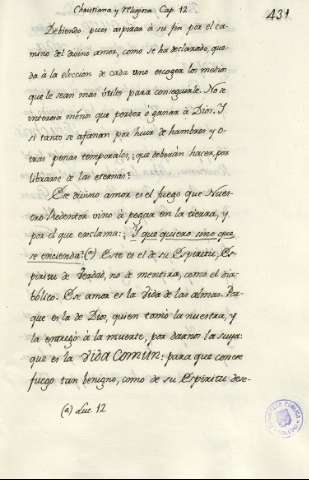 Christiana y Mistica Cap. 12
431
Debiendo pues aspirar à su fin por el ca-
mino del divino amor, como se ha declarado, que-
da à la eleccion de cada uno escoger los medios
que le sean mas utiles para conseguirle. No se
interesa menos que perder ó ganar à Dios. Y
si tanto se afanan por huir de hambres y o-
tras penas temporales, ¿que deberán hacer por
librarse de las eternas?
Ese divino amor es el fuego que Nues-
tro Redentor vino à pegar en la tierra, y
por el que exclama: Y que quiero sino que
se encienda? (a) Este es el de su Espiritu, Es-
piritu de Verdad, no de mentira, como el dia-
bólico. Ese amor es la Vida de las almas. Por-
que es la de Dios, quien tomó la nuestra, y
la entregó à la muerte, por darnos la suya:
que es la Vida Comun: para que con ese
fuego tan benigno, como de su Espiritu dese-
(a) Luc. 12